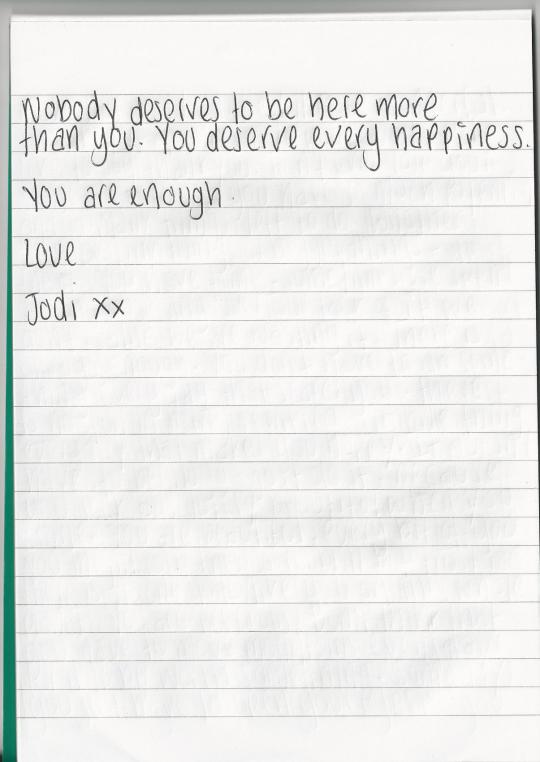 Nobody deserves to be here more
than you. You deserve every happiness.
You are enough.
Love
Jodi xx